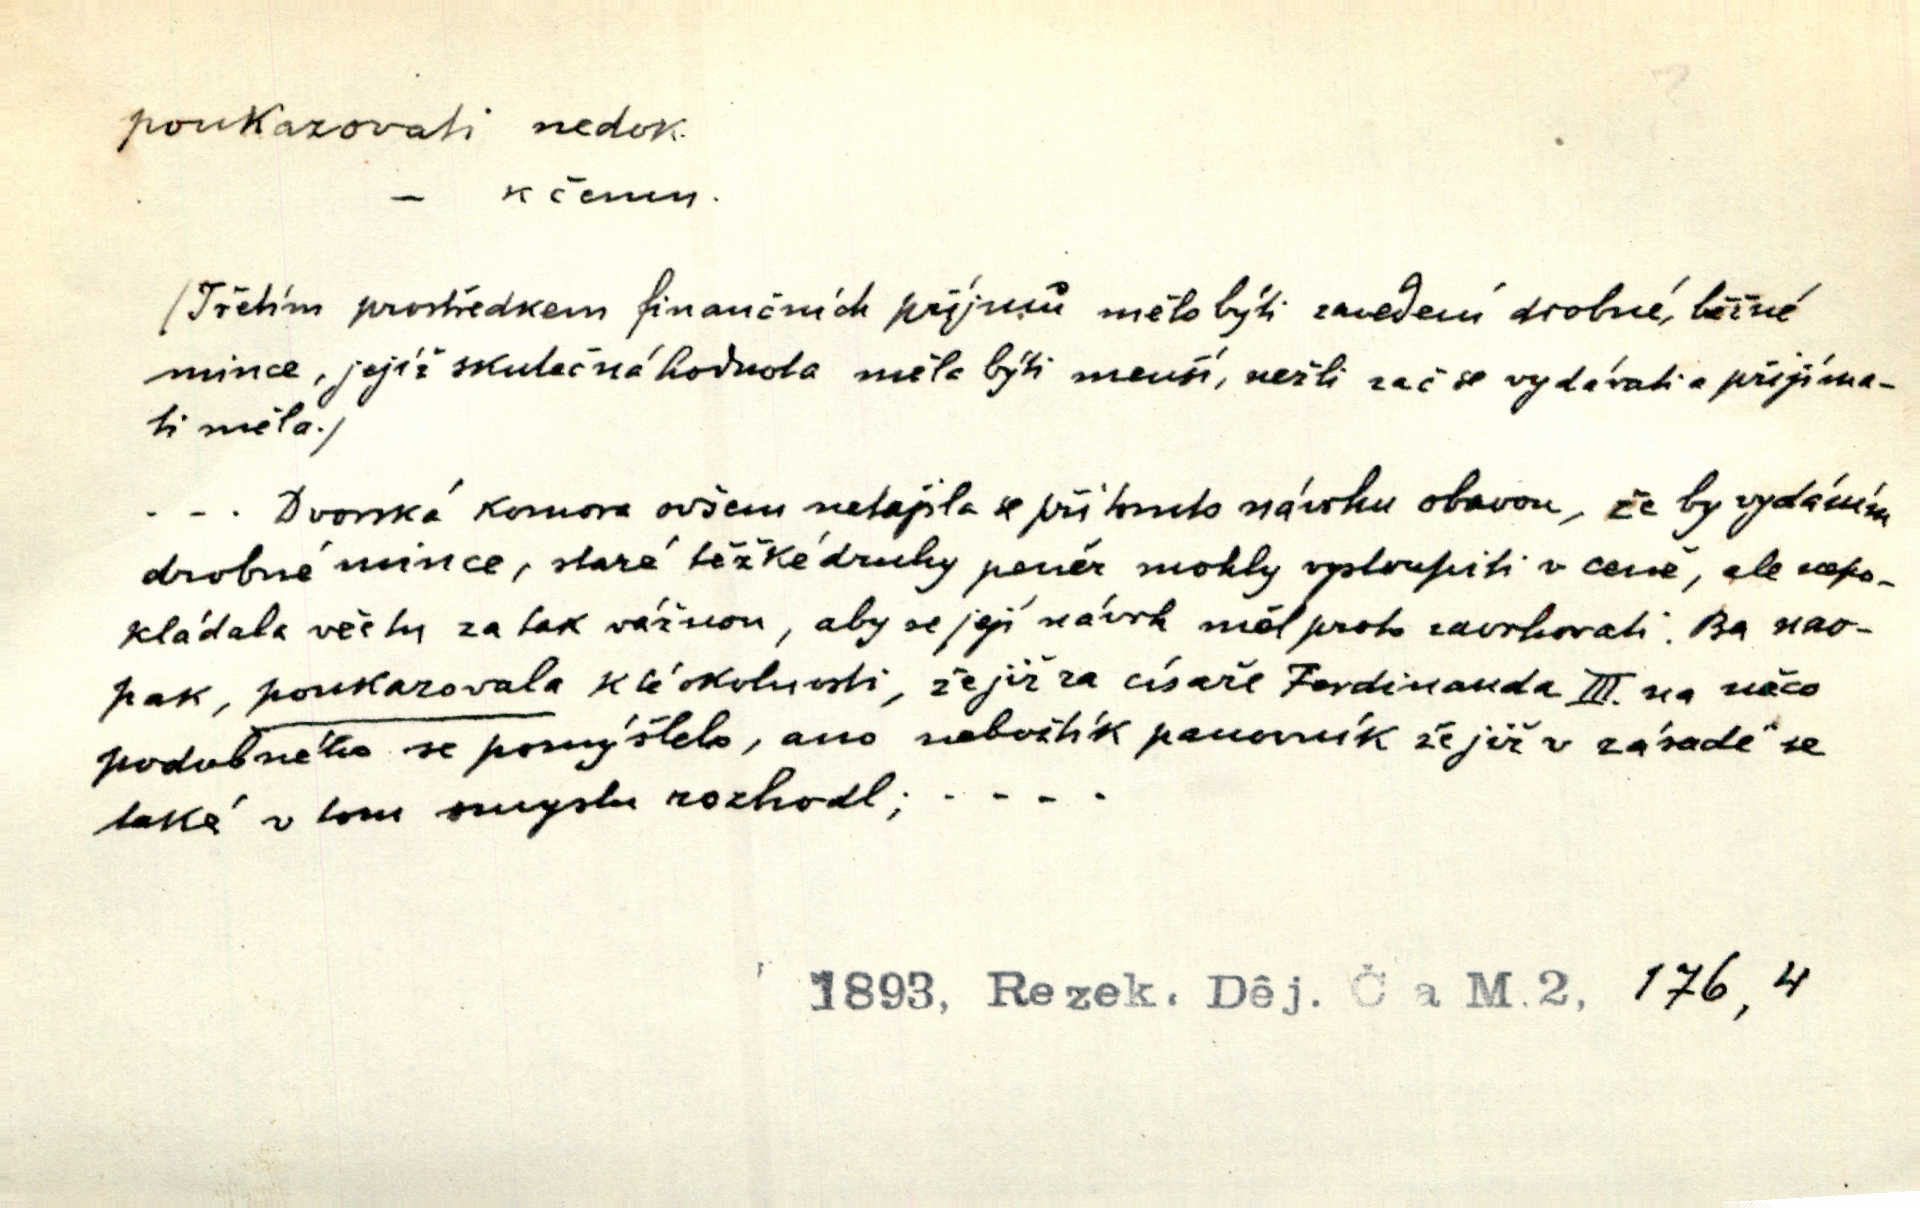 poukazovati nedok.
– k čemu.
/Třetím prostředkem finančních příjmů mělo býti zavedení drobné, běžné
mince, jejíž skutečná hodnota měla býti menší, nežli zač se vydávati a přijíma-
ti měla./
- - . Dvorská komora ovšem netajila se při tomto návrhu obavou, že by vydáním
drobné mince, staré těžké druhy peněz mohly vystoupiti v ceně, ale nepo-
kládala věc tu za tak vážnou, aby se její návrh měl proto zavrhovati. Ba nao-
pak, poukazovala k té okolnosti, že již za císaře Ferdinanda III. na něco
podobného se pomýšlelo, ano nebožtík panovník že již v zásadě se
také v tom smyslu rozhodl; - - - -
1893, Rezek. Děj. Č a M.2, 176,4